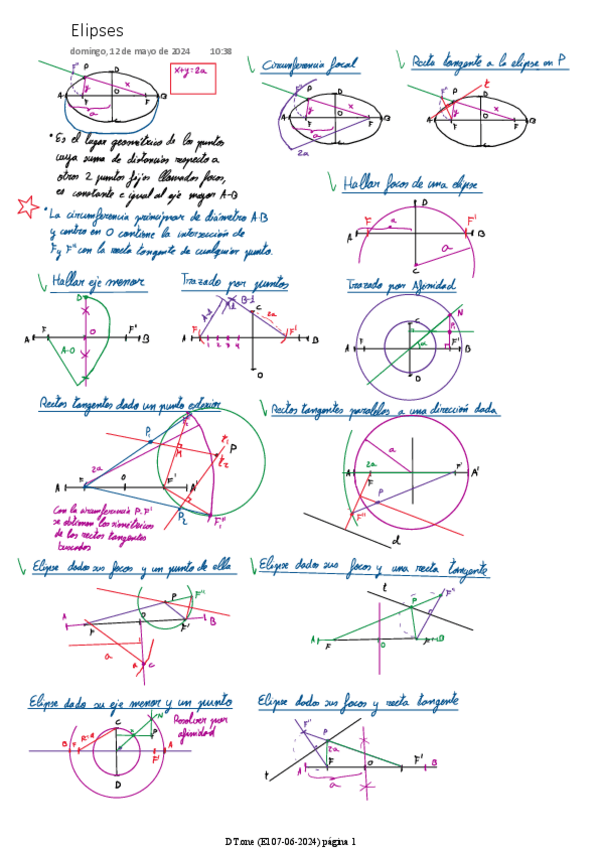 Elipses
domingo, 12 de mayo de 2024 10:38
x+y=2a
Circunferencia focal
Recta tangente a la elipse en P
• Es el lugar geometrico de los puntos
cuya suma de distancias respecto a
otros 2 puntos fijos llamados focos,
es constante e igual al eje mayor A-B
• La circunferencia principal de diametro A·B
y centro en O contiene la interseccion de
F y F'' con la recta tangente de cualquier punto.
Hallar focos de una elipse
Hallar eje menor
Trazado por puntos
Trazado por Afinidad
Rectas tangentes dado un punto exterior
Rectas tangentes paralelas a una dirección dada
Con la circunferencia P·F'
se obtienen los simétricos
de las rectas tangentes
buscadas
Elipse dados sus focos y un punto de ella
Elipse dados sus focos y una recta tangente
Elipse dado su eje menor y un punto
Resolver por
afinidad
Elipse dados sus focos y recta tangente
DT.one (E107-06-2024) página 1